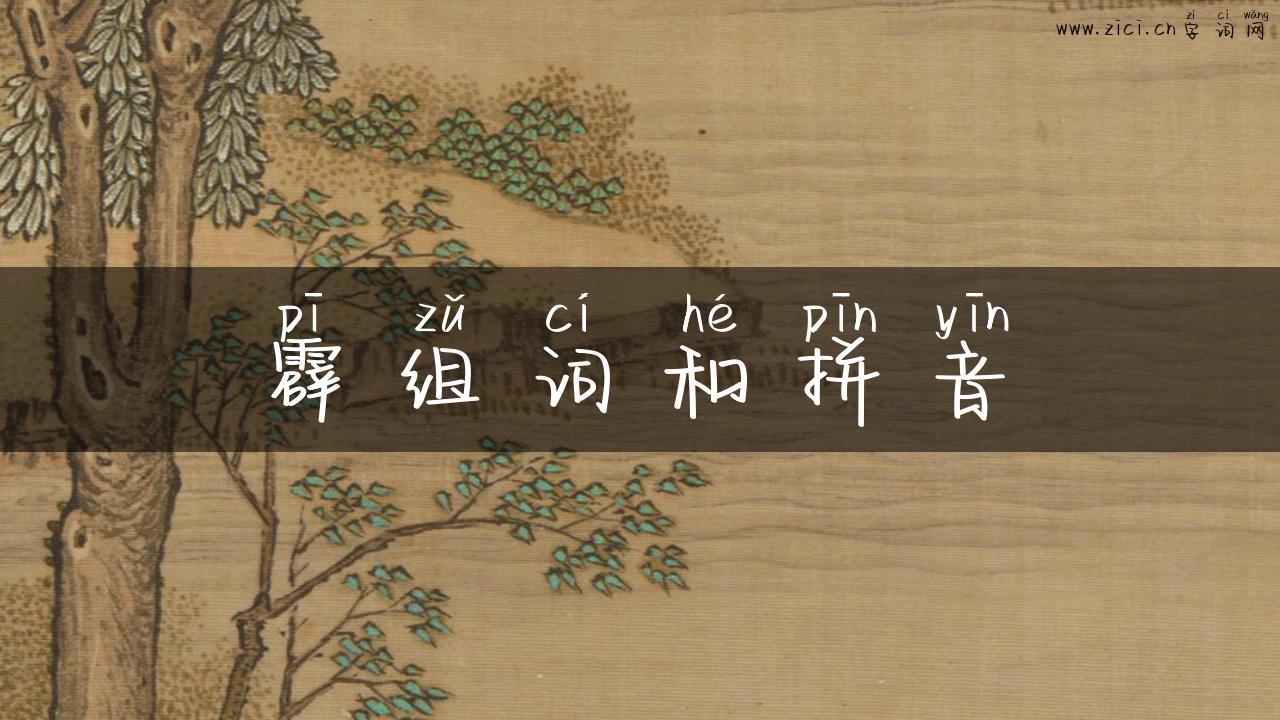 zì cí wǎng
www.zici.cn 字词网
pī zǔ cí hé pīn yīn
霹组词和拼音